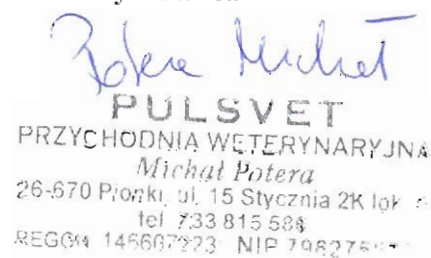 Potera Michał
PULSVET
PRZYCHODNIA WETERYNARYJNA
Michał Potera
26-670 Pionki, ul. 15 Stycznia 2K lok
tel 733 815 586
REGON 146607223 NIP